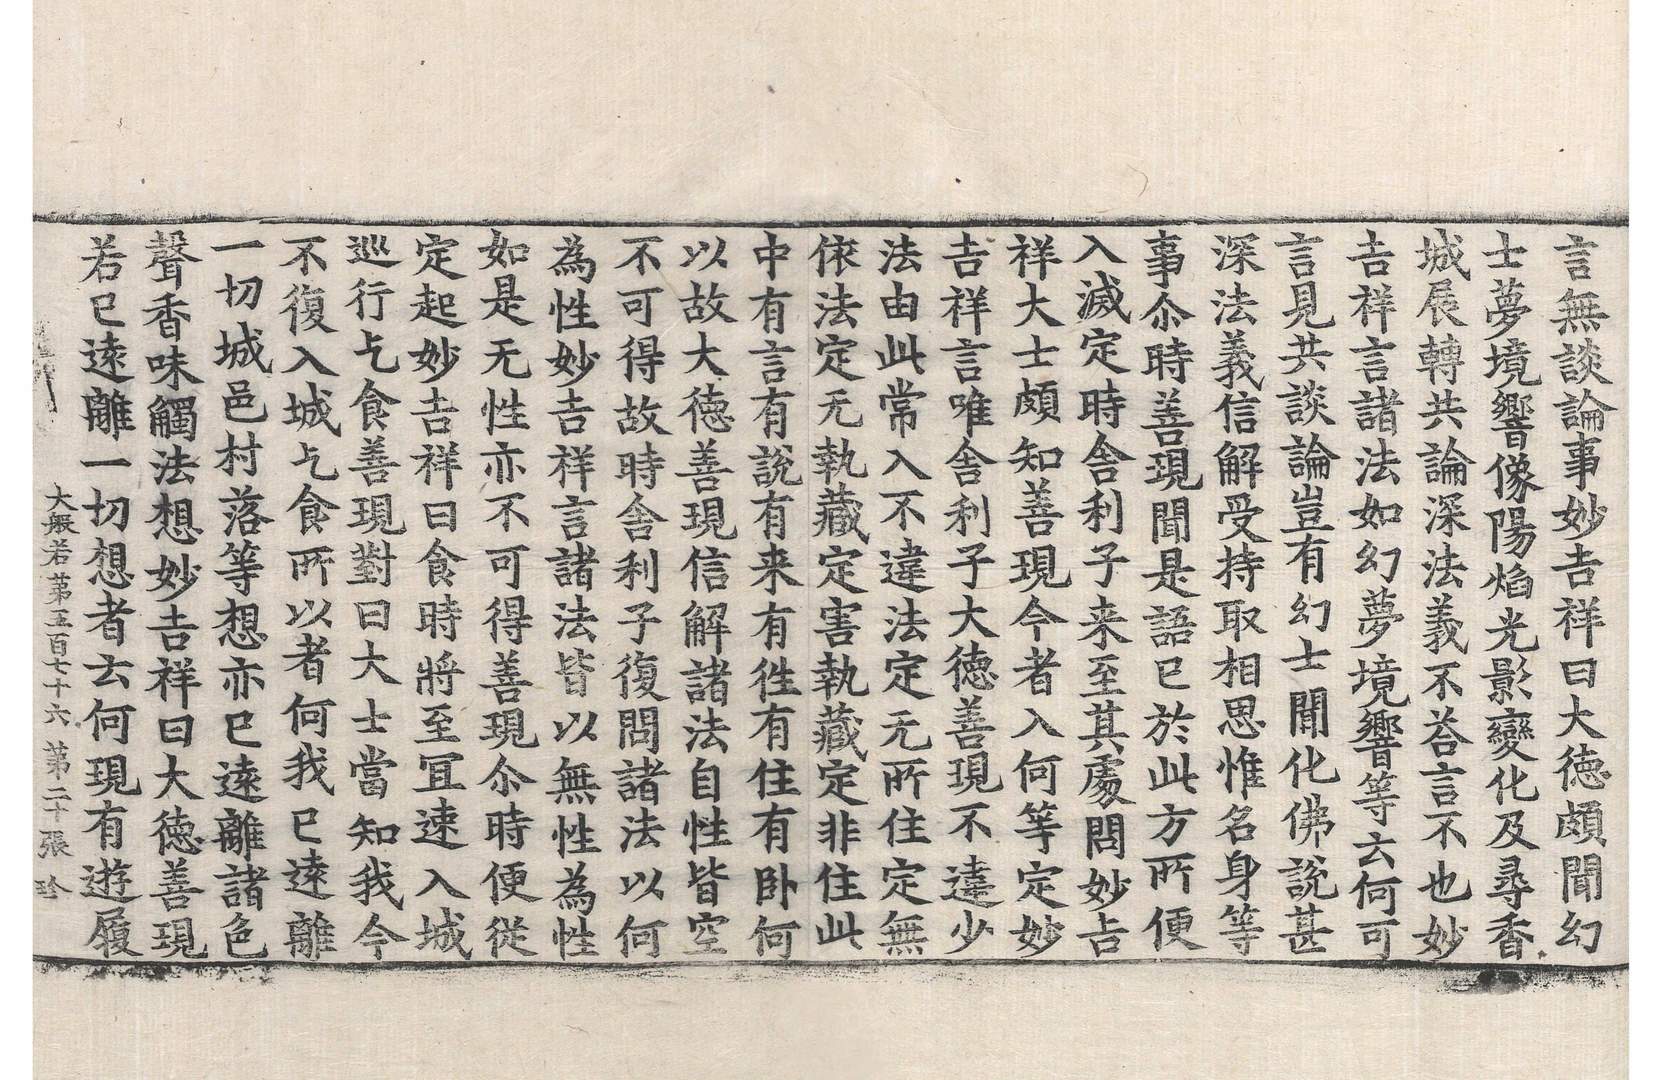 言無談論事妙吉祥曰大徳頗聞幻
士夢境響像陽焰光影變化及尋香
城展轉共論深法義不荅言不也妙
吉祥言諸法如幻夢境響等云何可
言見共談論豈有幻士聞化佛說甚
深法義信解受持取相思惟名身等
事尒時善現聞是語已於此方所便
入滅定時舎利子来至其處問妙吉
祥大士頗知善現今者入何等定妙
吉祥言唯舎利子大徳善現不違少
法由此常入不違法定无所住定無
依法定无執藏定害執藏定非住此
中有言有說有来有徃有住有卧何
以故大徳善現信解諸法自性皆空
不可得故時舎利子復問諸法以何
為性妙吉祥言諸法皆以無性為性
如是无性亦不可得善現尒時便從
定起妙吉祥曰食時將至冝速入城
巡行乞食善現對曰大士當知我今
不復入城乞食所以者何我已逺離
一切城邑村落等想亦已逺離諸色
聲香味觸法想妙吉祥曰大徳善現
若已逺離一切想者云何現有遊履
大般若第五百七十六 第二十張 珍